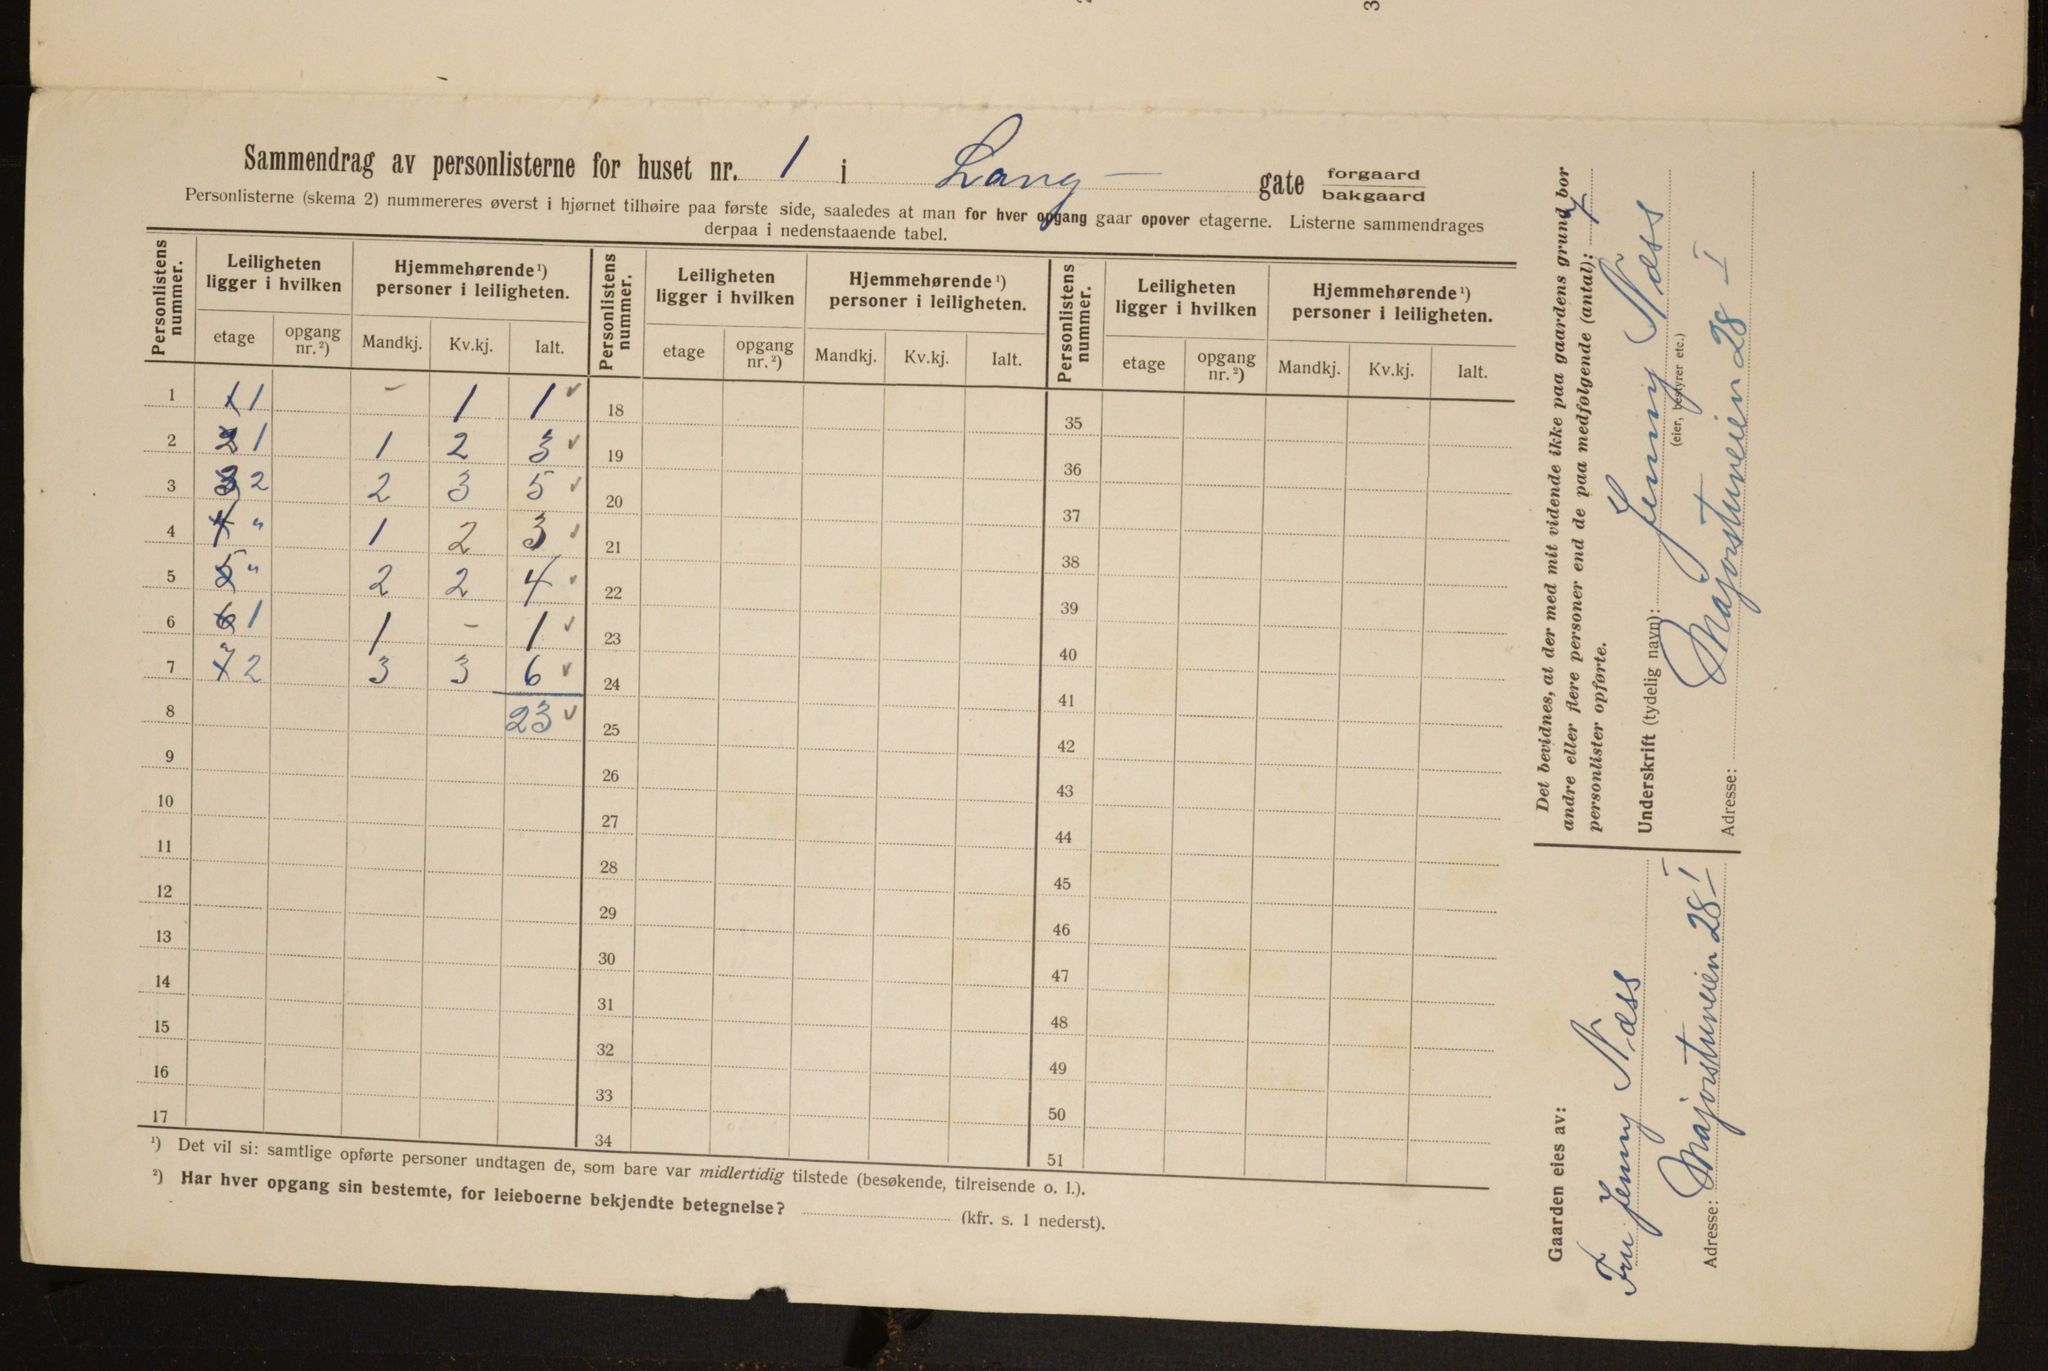 Sammendrag av personlisterne for huset nr. 1 i Lang- gate forgaard bakgaard
Personlisterne (skema 2) nummereres øverst i hjørnet tilhøire paa første side, saaledes at man for hver opgang gaar opover etagerne. Listerne sammendrages
derpaa i nedenstaaende tabel.
Personlistens nummer. Leiligheten ligger i hvilken Hjemmehørende¹) personer i leiligheten. Personlistens nummer. Leiligheten ligger i hvilken Hjemmehørende¹) personer i leiligheten. Personlistens nummer. Leiligheten ligger i hvilken Hjemmehørende¹) personer i leiligheten.
etage opgang nr.²) Mandkj. Kv.kj. Ialt. etage opgang nr.²) Mandkj. Kv.kj. Ialt. etage opgang nr.²) Mandkj. Kv.kj. Ialt.
1 1 1 – 1 1 ✓ 18 35
2 2 1 1 2 3 ✓ 19 36
3 3 2 2 3 5 ✓ 20 37
4 4 " 1 2 3 ✓ 21 38
5 5 " 2 2 4 ✓ 22 39
6 6 1 1 – 1 ✓ 23 40
7 7 2 3 3 6 ✓ 24 41
8 23 ✓ 25 42
9 26 43
10 27 44
11 28 45
12 29 46
13 30 47
14 31 48
15 32 49
16 33 50
17 34 51
¹) Det vil si: samtlige opførte personer undtagen de, som bare var midlertidig tilstede (besøkende, tilreisende o. l.).
²) Har hver opgang sin bestemte, for leieboerne bekjendte betegnelse? (kfr. s. 1 nederst).
Det bevidnes, at der med mit vidende ikke paa gaardens grund bor
andre eller flere personer end de paa medfølgende (antal): 7
personlister opførte.
Underskrift (tydelig navn): Jenny Næss
(eier, bestyrer etc.)
Adresse: Majorstuveien 28 I
Gaarden eies av:
Fru Jenny Næss
Adresse: Majorstuveien 28 I